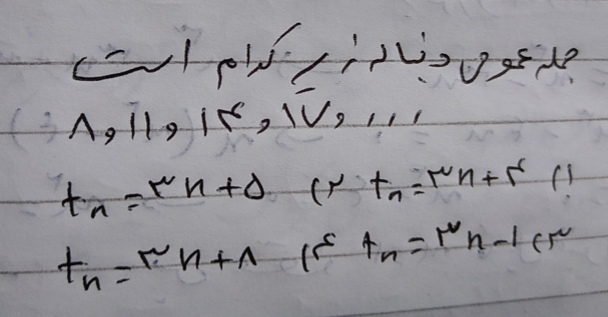 جمله عمومی دنباله زیر کدام است
۸, ۱۱, ۱۴, ۱۷, ...
۱) tn = ۳n + ۴ ۲) tn = ۳n + ۵
۳) tn = ۳n - ۱ ۴) tn = ۳n + ۸